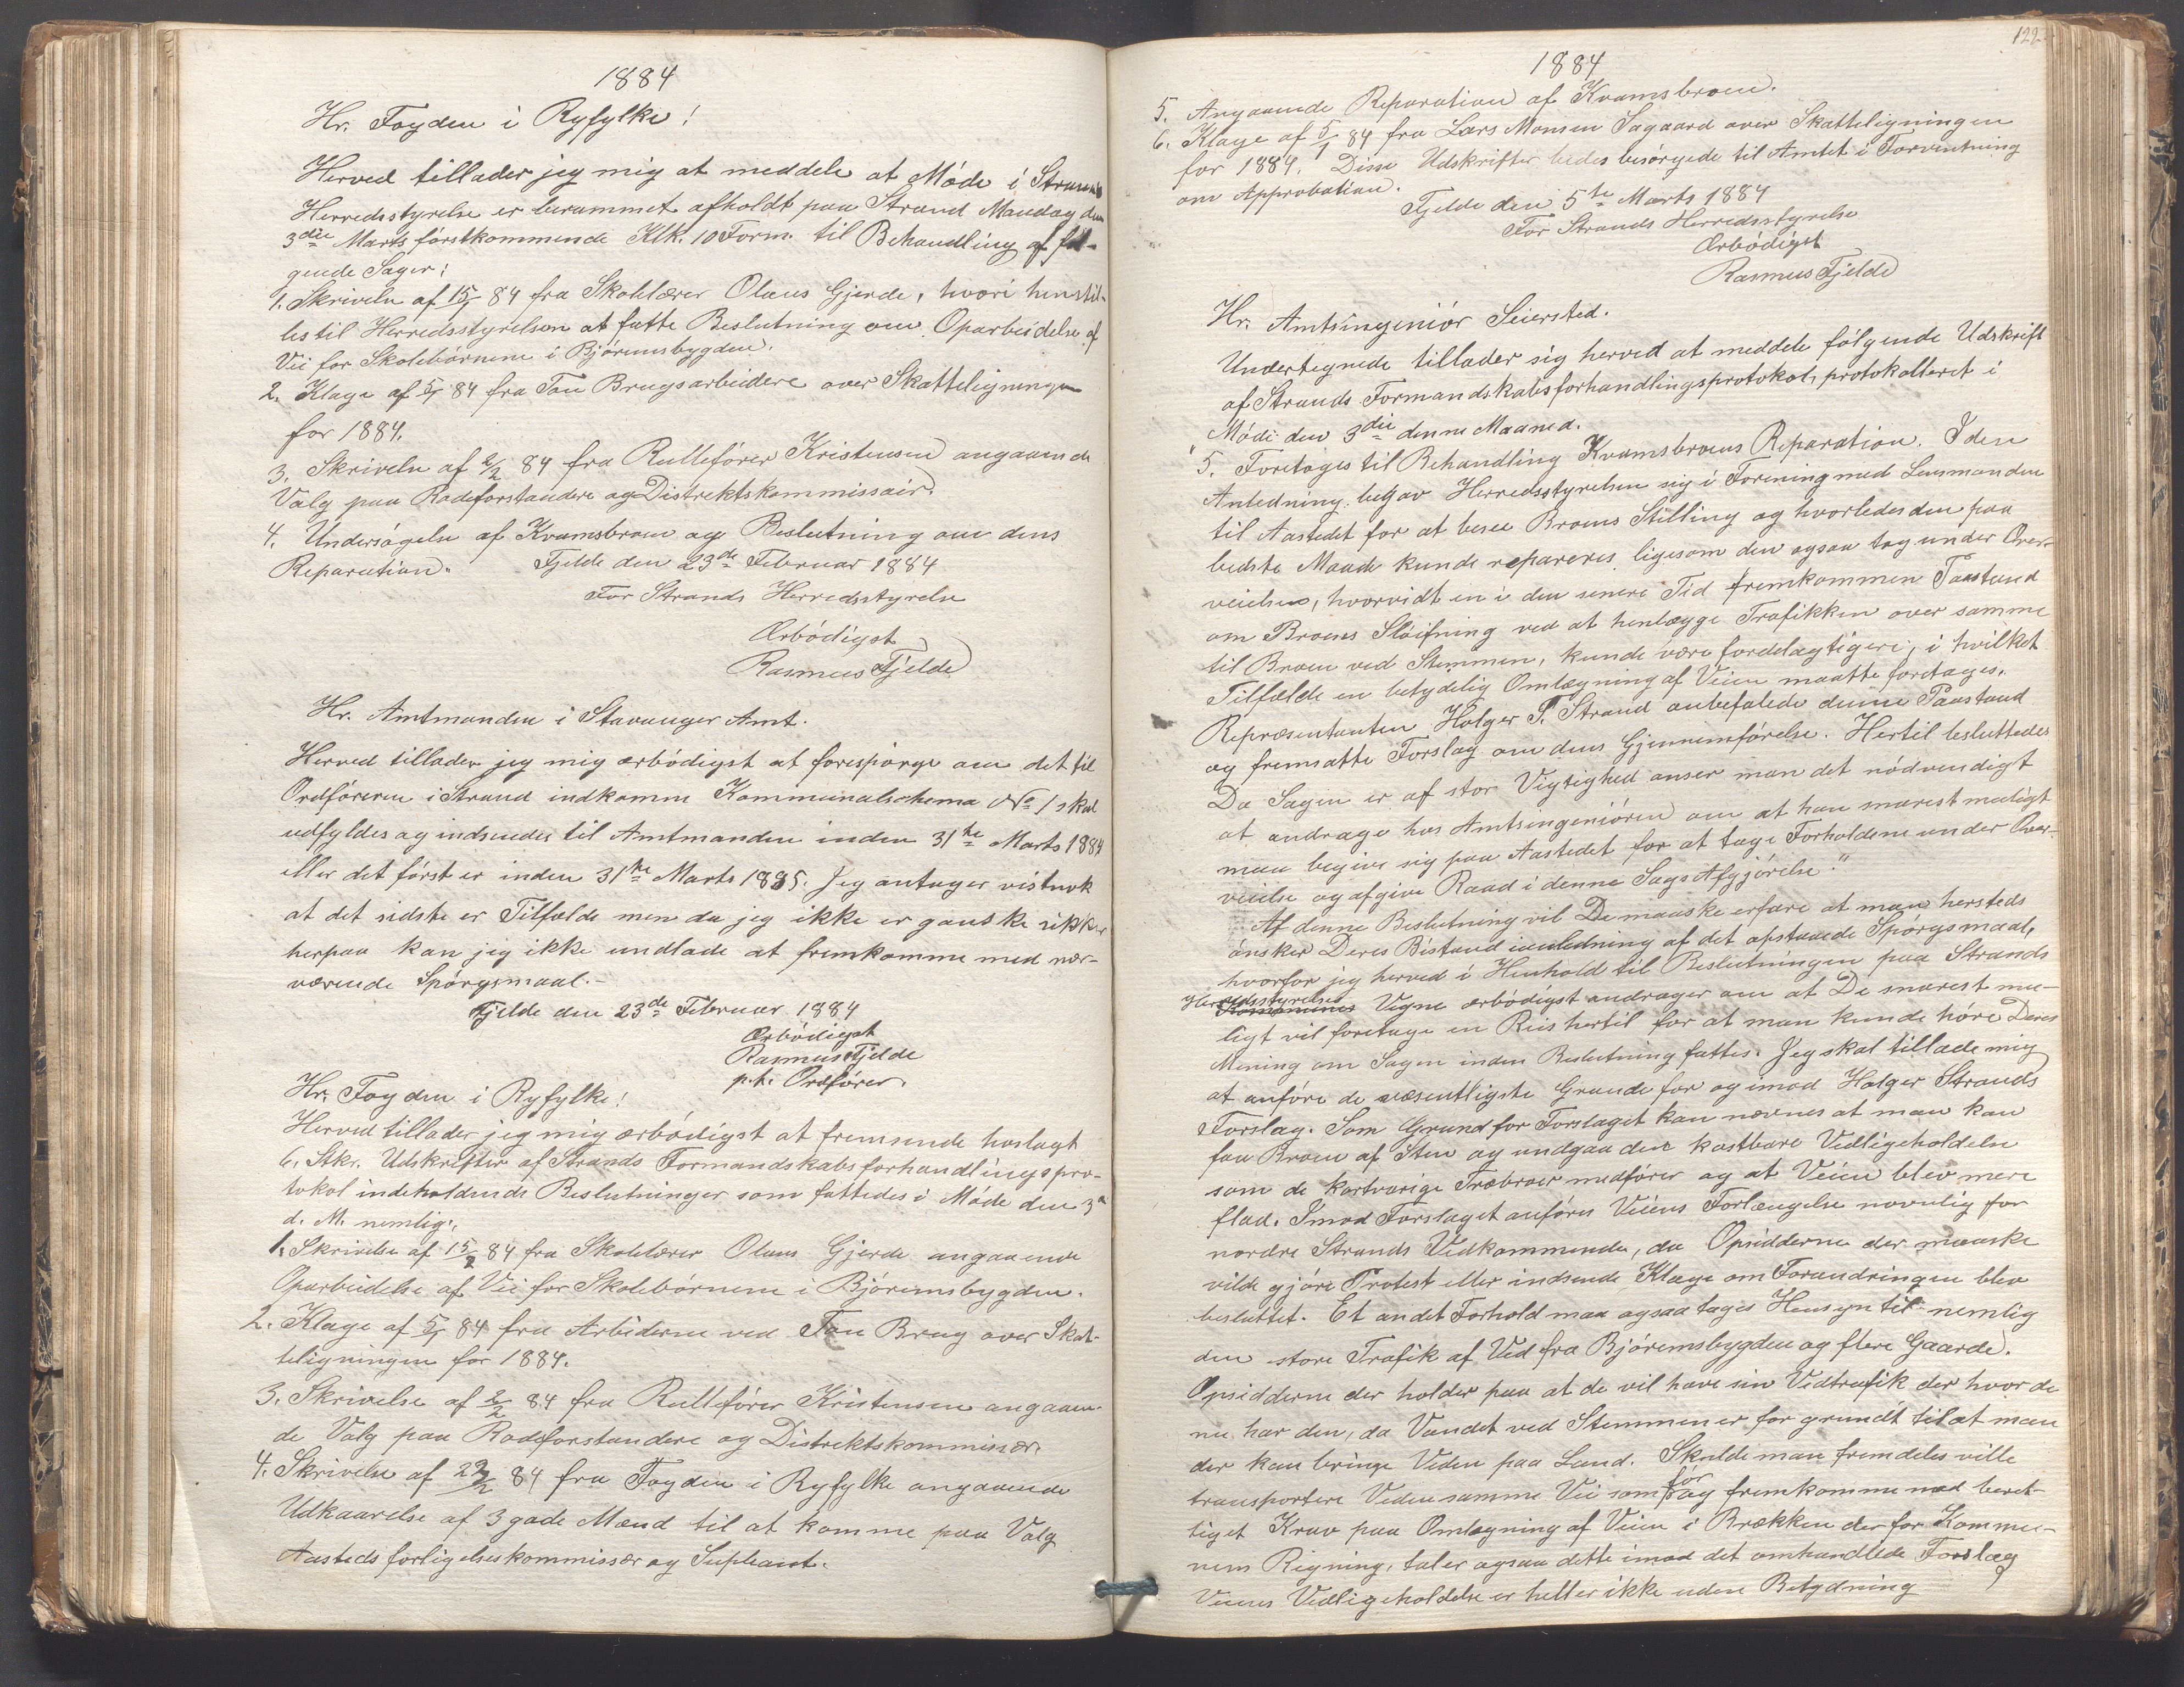 1884
Hr. Fogden i Ryfylke!
Herved tillader jeg mig at meddele at Møde i Strands
Herredsstyrelse er berammet afholdt paa Strand Mandag den
3die Marts førstkommende Klk. 10 Form. til Behandling af føl-
gende Sager:
1. Skrivelse af 15/1 84 fra Skolelærer Olaus Gjerde, hvori henstil-
les til Herredsstyrelsen at fatte Beslutning om Oparbeidelse af
Vei for Skolebørnene i Bjøreimsbygden.
2. Klage af 5/1 84 fra Tau Brugsarbeidere over Skatteligningen
for 1884.
3. Skrivelse af 2/2 84 fra Rullefører Kristensen angaaende
Valg paa Rodeforstandere og Distriktskommissair.
4. Undersøgelse af Kvamsbroen og Beslutning om dens
Reparation. Fjelde den 23de Februar 1884
For Strands Herredsstyrelse
Ærbødigst
Rasmus Fjelde
Hr. Amtmanden i Stavanger Amt.
Herved tillader jeg mig ærbødigst at forespørge om det til
Ordføreren i Strand indkomne Kommunalschema No 1 skal
udfyldes og indsendes til Amtmanden inden 31te Marts 1884
eller det først er inden 31te Marts 1885. Jeg antager vistnok
at det sidste er Tilfælde men da jeg ikke er ganske sikker
herpaa kan jeg ikke undlade at fremkomme med nær-
værende Spørgsmaal.-
Fjelde den 23de Februar 1884
Ærbødigst
Rasmus Fjelde
p.t. Ordfører.
Hr. Fogden i Ryfylke!
Herved tillader jeg mig ærbødigst at fremsende hoslagt
6. Stkr. Udskrifter af Strands Formandskabsforhandlingspro-
tokol indeholdende Beslutninger som fattedes i Møde den 3die
d. M. nemlig:
1. Skrivelse af 15/2 84 fra Skolelærer Olaus Gjerde angaaende
Oparbeidelse af Vei for Skolebørnene i Bjøreimsbygden.
2. Klage af 5/1 84 fra Arbeiderne ved Tau Brug over Skat-
teligningen for 1884.
3. Skrivelse af 2/2 84 fra Rullefører Kristensen angaaen-
de Valg paa Rodeforstandere og Distriktskommissær.
4. Skrivelse af 22/2 84 fra Fogden i Ryfylke angaaende
Udkaarelse af 3 gode Mænd til at komme paa Valg
Aasteds forligelseskommissær og Supleant.
122
1884
5. Angaaende Reparation af Kvamsbroen.
6. Klage af 5/1 84 fra Lars Monsen Sagaard over Skatteligningen
for 1884. Disse Udskrifter bedes besørgede til Amtet i Forventning
om Approbation.
Fjelde den 5te Marts 1884
For Strands Herredsstyrelse
Ærbødigst
Rasmus Fjelde
Hr. Amtsingeniør Seiersted.
Undertegnede tillader sig herved at meddele følgende Udskrift
af Strands Formandskabsforhandlingsprotokol, protokolleret i
Møde den 3die denne Maaned.
"5. Foretoges til Behandling Kvamsbroens Reparation. I den
Anledning begav Herredsstyrelsen sig i Forening med Lensmanden
til Aastedet for at besee Broens Stilling og hvorledes den paa
bedste Maade kunde repareres, ligesom den ogsaa tog under Over-
veielse, hvorvidt en i den senere Tid fremkommen Paastand
om Broens Sløifning ved at henlægge Trafikken over samme
til Broen ved Stemmen, kunde være fordelagtigere; i hvilket
Tilfælde en betydelig Omlægning af Veien maatte foretages.
Repræsentanten Holger T. Strand anbefalede denne Paastand
og fremsatte Forslag om dens Gjennemførelse. Hertil besluttedes
Da Sagen er af stor Vigtighed anser man det nødvendigt
at andrage hos Amtsingeniøren om at han snarest muligt
maa begive sig paa Aastedet for at tage Forholdene under Over-
veielse og afgive Raad i denne Sags Afgjørelse."
Af denne Beslutning vil De maaske erfare at man hersteds
ønsker Deres Bistand i anledning af det opstaaede Spørgsmaal,
hvorfor jeg herved i Henhold til Beslutningen paa Strands
Herredsstyrelses
Kommunes Vegne ærbødigst andrager om at De snarest mu-
ligt vil foretage en Reis hertil for at man kunde høre Deres
Mening om Sagen inden Beslutning fattes. Jeg skal tillade mig
at anføre de væsentligste Grunde for og imod Holger Strands
Forslag. Som Grund for Forslaget kan nævnes at man kan
faa Broen af Sten og undgaa den kostbare Vedligeholdelse
som de kortvarige Træbroer medfører og at Veien blev mere
flad. Imod Forslaget anføres Veiens Forlængelse navnlig for
nordre Strands Vedkommende, da Opsidderne der maaske
vilde gjøre Protest eller indsende Klage om Forandringen blev
besluttet. Et andet Forhold maa ogsaa tages Hensyn til nemlig
den store Trafik af Ved fra Bjøreimsbygden og flere Gaarde.
Opsidderne der holder paa at de vil have sin Vedtrafik der hvor de
nu har den, da Vandet ved Stemmen er for grundt til at man
der kan bringe Veden paa Land. Skulde man fremdeles ville
transportere Veden samme Vei som før og fremkomme med beret-
tiget Krav paa Omlægning af Veien i Brækken der for Kommu-
nens Regning, taler ogsaa dette imod det omhandlede Forslag
Veiens Vedligeholdelse er heller ikke uden Betydning